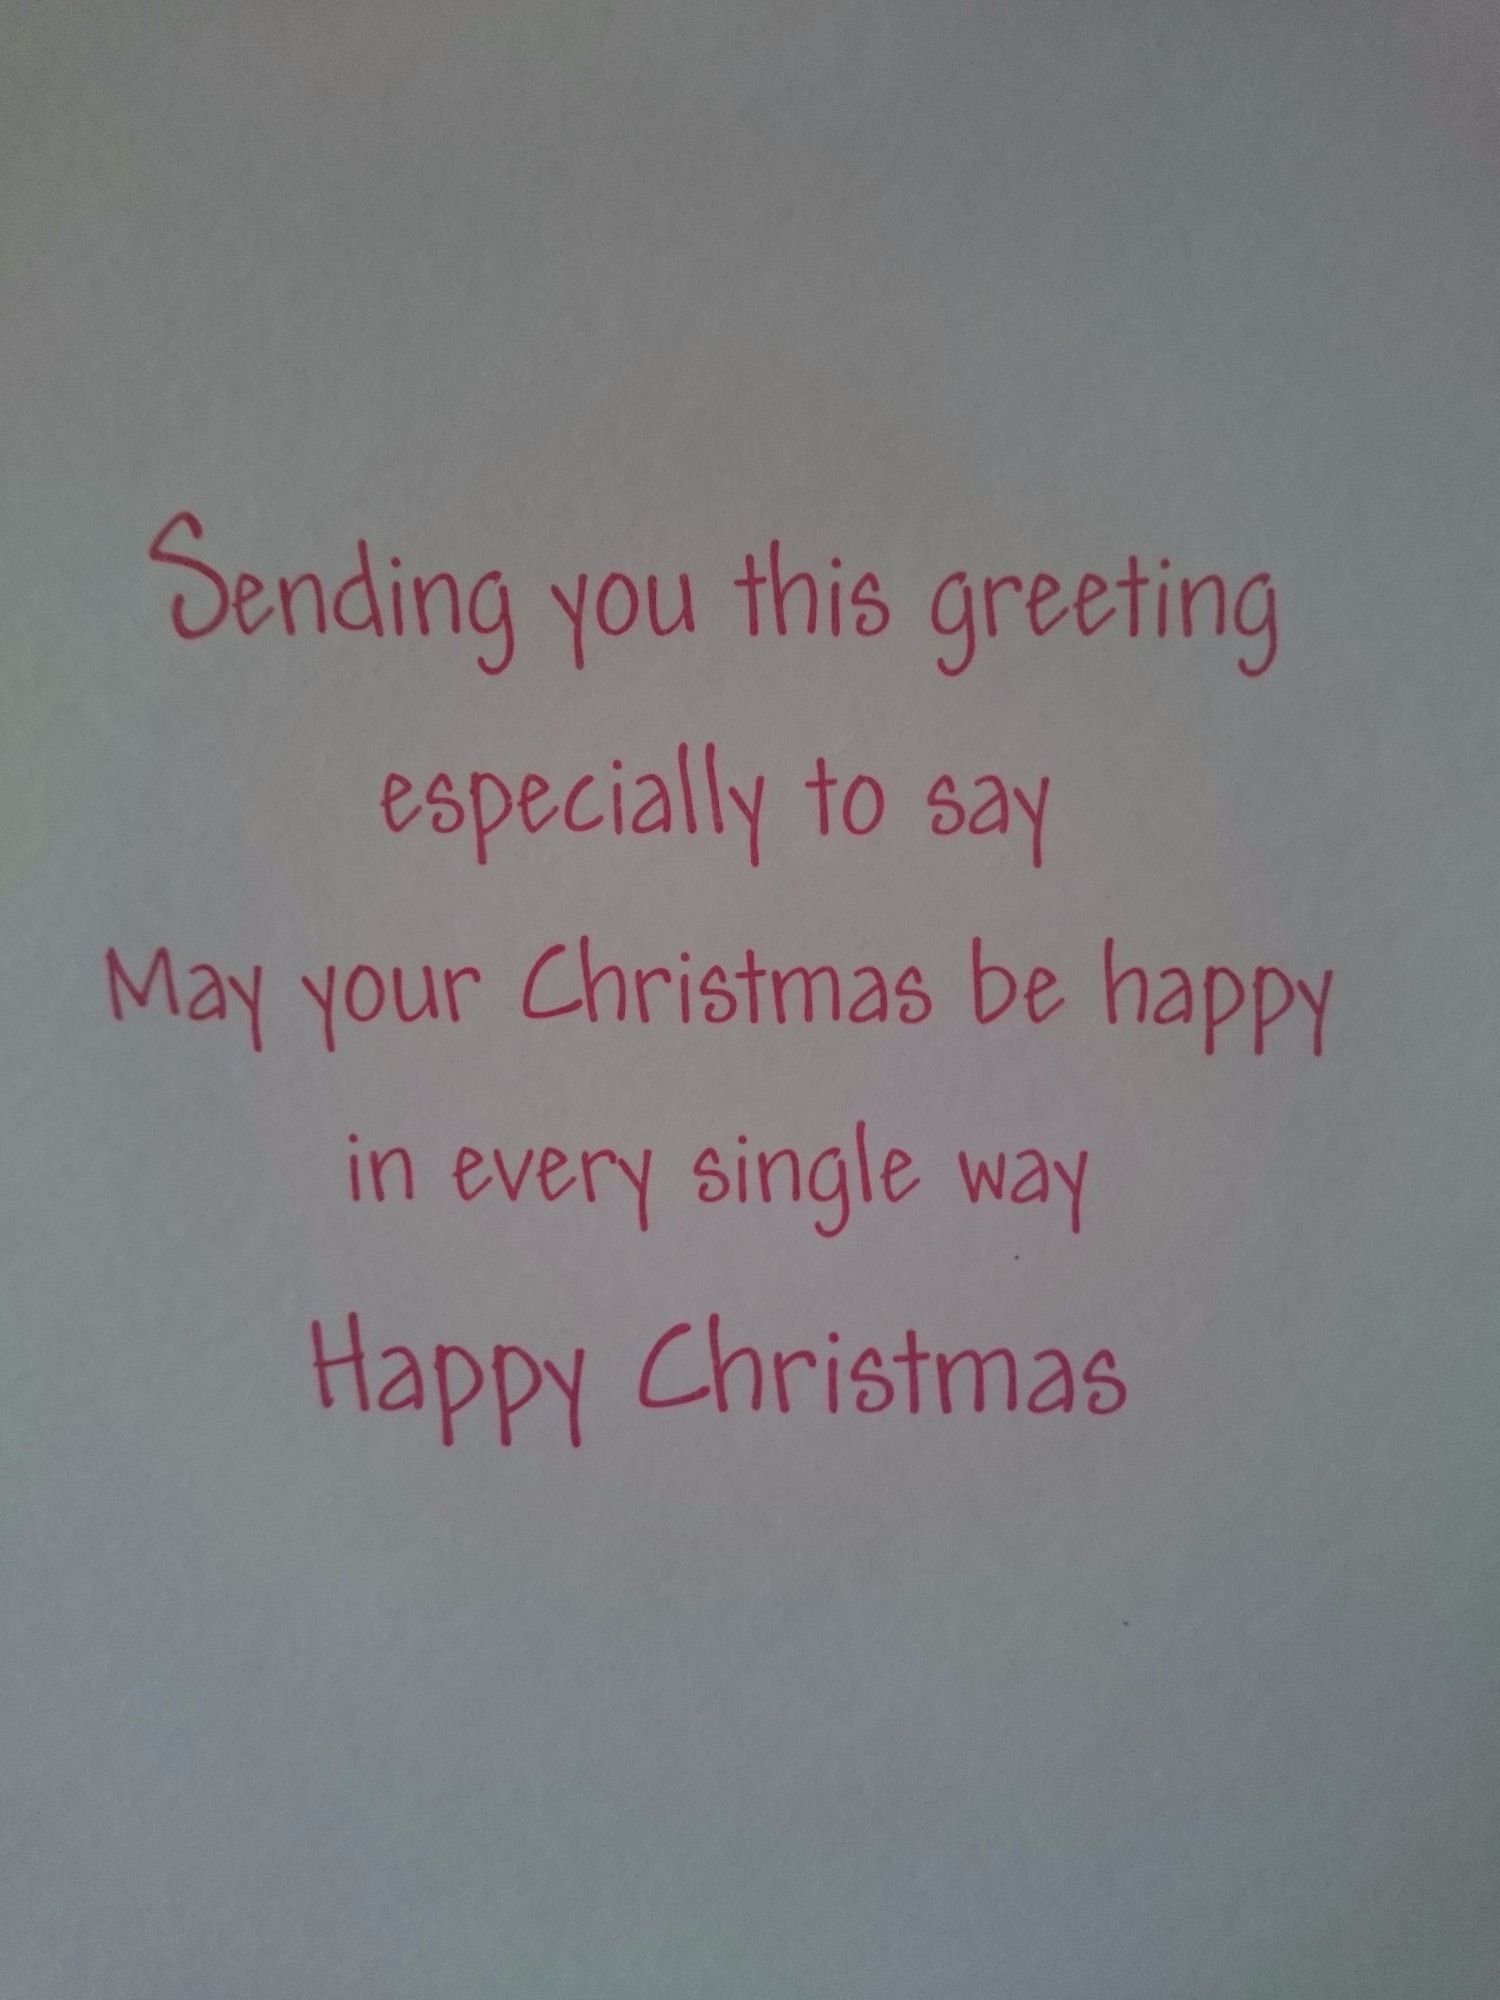 Sending you this greeting
especially to say
May your Christmas be happy
in every single way
Happy Christmas